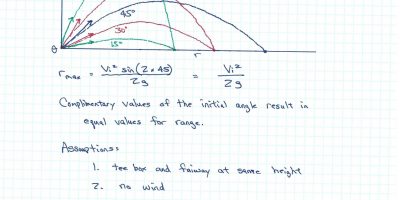 45°
30°
15°
θ
r
r max = Vi² sin(2×45) / 2g = Vi² / 2g
Complimentary values of the initial angle result in
equal values for range.
Assumptions:
1. tee box and fairway at same height
2. no wind